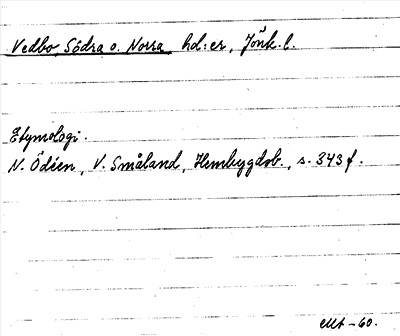 Vedbo, Södra o. Norra hd:er, Jönk. l.
Etymologi.
N. Ödéen, V. Småland, Hembygdsb., s. 343 f.
-60.